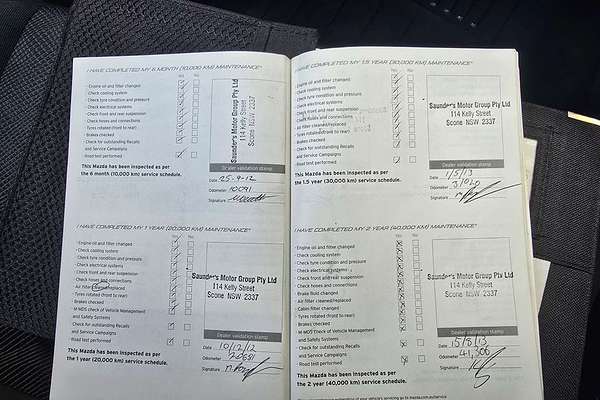 I HAVE COMPLETED MY 6 MONTH (10,000 KM) MAINTENANCE*
Yes No
· Engine oil and filter changed
· Check cooling system
· Check tyre condition and pressure
· Check electrical systems
· Check front and rear suspension
· Check hoses and connections
· Tyres rotated (front to rear)
· Brakes checked
· Check for outstanding Recalls
and Service Campaigns
· Road test performed
Saunder's Motor Group Pty Ltd
114 Kelly Street
Scone NSW 2337
Dealer validation stamp
This Mazda has been inspected as per
the 6 month (10,000 km) service schedule.
Date 25-9-12
Odometer 10091
Signature
I HAVE COMPLETED MY 1 YEAR (20,000 KM) MAINTENANCE*
Yes No
· Engine oil and filter changed
· Check cooling system
· Check tyre condition and pressure
· Check electrical systems
· Check front and rear suspension
· Check hoses and connections
· Air filter cleaned/replaced
· Tyres rotated (front to rear)
· Brakes checked
· M-MDS Check of Vehicle Management
and Safety Systems
· Check for outstanding Recalls
and Service Campaigns
· Road test performed
Saunder's Motor Group Pty Ltd
114 Kelly Street
Scone NSW 2337
Dealer validation stamp
This Mazda has been inspected as per
the 1 year (20,000 km) service schedule.
Date 10/12/12
Odometer
Signature
I HAVE COMPLETED MY 1.5 YEAR (30,000 KM) MAINTENANCE*
Yes No
· Engine oil and filter changed
· Check cooling system
· Check tyre condition and pressure
· Check electrical systems
· Check front and rear suspension
· Check hoses and connections
· Air filter cleaned/replaced
· Tyres rotated (front to rear)
· Brakes checked
· Check for outstanding Recalls
and Service Campaigns
· Road test performed
Saunder's Motor Group Pty Ltd
114 Kelly Street
Scone NSW 2337
Dealer validation stamp
This Mazda has been inspected as per
the 1.5 year (30,000 km) service schedule.
Date 1/5/13
Odometer
Signature
I HAVE COMPLETED MY 2 YEAR (40,000 KM) MAINTENANCE*
Yes No
· Engine oil and filter changed
· Check cooling system
· Check tyre condition and pressure
· Check electrical systems
· Check front and rear suspension
· Check hoses and connections
· Brake fluid changed
· Air filter cleaned/replaced
· Cabin filter changed
· Tyres rotated (front to rear)
· Brakes checked
· M-MDS Check of Vehicle Management
and Safety Systems
· Check for outstanding Recalls
and Service Campaigns
· Road test performed
Saunder's Motor Group Pty Ltd
114 Kelly Street
Scone NSW 2337
Dealer validation stamp
This Mazda has been inspected as per
the 2 year (40,000 km) service schedule.
Date 15/8/13
Odometer 41,306
Signature